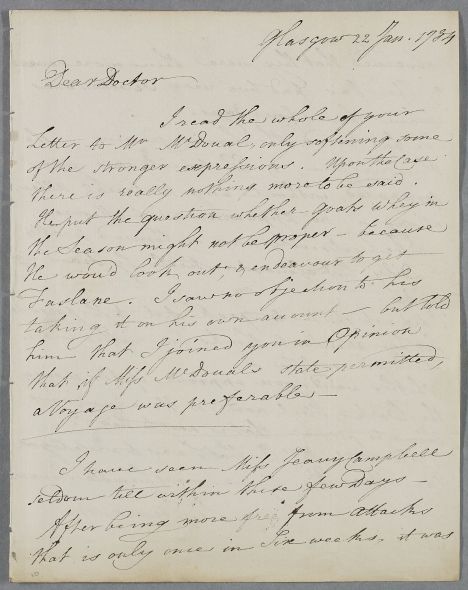 Glasgow 22 Jan. 1784
Dear Doctor
I read the whole of your
Letter to Mr McDoual, only softning some
of the stronger expressions. Upon the Case
there is really nothing more to be said
He put the question whether goats whey in
the Season might not be proper – because
he would look out, & endeavour to get
Faslane. I saw no objection to his
taking it on his own account – but told
him that I joined you in Opinion
that if Miss McDouals state permitted,
a Voyage was preferable –
I have seen Miss Jeany Campbell
seldom till within these few days –
After being more free from attacks
that is only once in Six weeks, it was